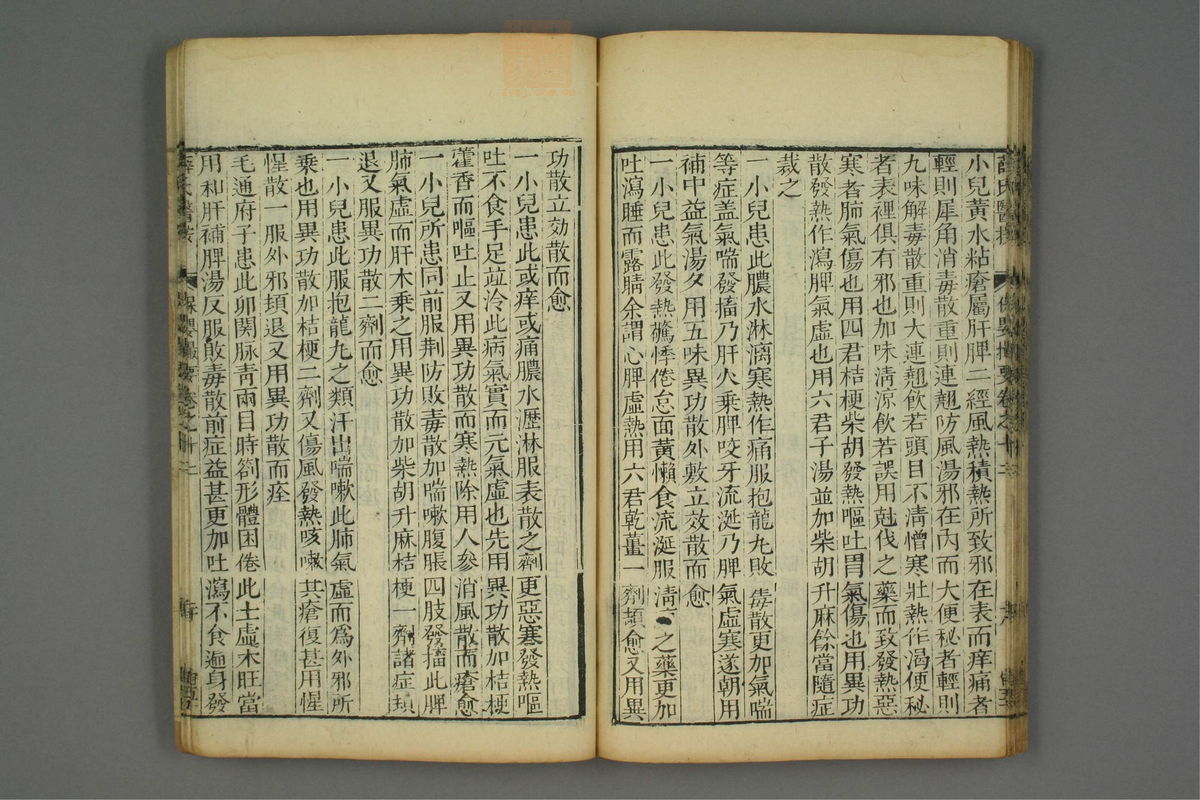 小兒黃水粘瘡屬肝脾二經風熱積熱所致邪在表而痒痛者
輕則犀角消毒散重則連翹防風湯邪在內而大便秘者輕則
九味解毒散重則大連翹飲若頭目不淸憎寒壯熱作渴便秘
者表裡俱有邪也加味淸凉飲若誤用尅伐之藥而致發熱惡
寒者肺氣傷也用四君桔梗柴胡發熱嘔吐胃氣傷也用異功
散發熱作瀉脾氣虛也用六君子湯並加柴胡升麻餘當隨症
裁之
一小兒患此膿水淋漓寒熱作痛服抱龍丸敗毒散更加氣喘
等症盖氣喘發搐乃肝火乘脾咬牙流涎乃脾氣虛寒遂朝用
補中益氣湯夕用五味異功散外敷立效散而愈
一小兒患此發熱驚悸倦怠面黃懶食流涎服淸之藥更加
吐瀉睡而露睛余謂心脾虛熱用六君乾薑一劑頓愈又用異
功散立効散而愈
一小兒患此或痒或痛膿水瀝淋服表散之劑更惡寒發熱嘔
吐不食手足竝冷此病氣實而元氣虛也先用異功散加桔梗
藿香而嘔吐止又用異功散而寒熱除用人參消風散而瘡愈
一小兒所患同前服荆防敗毒散加喘嗽腹脹四肢發搐此脾
肺氣虛而肝木乘之用異功散加柴胡升麻桔梗一劑諸症頓
退又服異功散二劑而愈
一小兒患此服抱龍丸之類汗出喘嗽此肺氣虛而爲外邪所
乘也用異功散加桔梗二劑又傷風發熱咳嗽其瘡復甚用惺
惺散一服外邪頓退又用異功散而痊
毛通府子患此卯関脉靑兩目時劄形體困倦此土虛木旺當
用和肝補脾湯反服敗毒散前症益甚更加吐瀉不食遍身發
薛氏醫按
保嬰撮要卷之十二